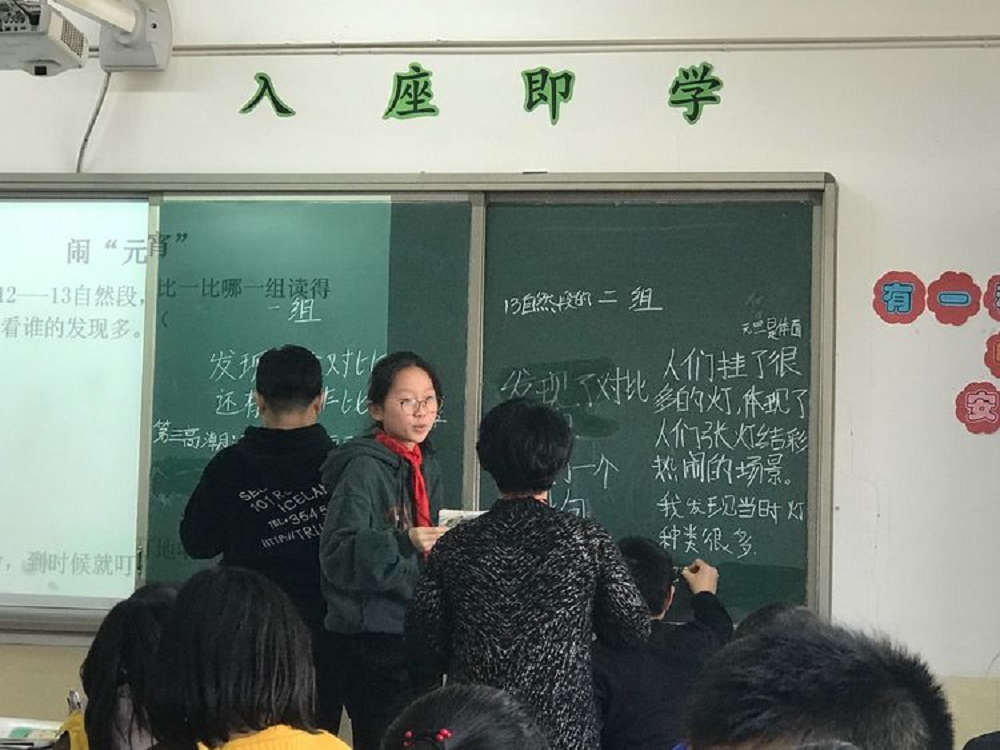 入座即学
闹“元宵”
12—13自然段，比一比哪一组读得
看谁的发现多。（
一组
发现 对比
还有 比
第三高潮
，到时候就叮 地
13自然段的 二 组
元旦是
发现了对比
一个
句
人们挂了很
多的灯，体现了
人们张灯结彩
热闹的场景。
我发现当时灯
种类很多.
有一
安
ICELA
TEL+354 5
HTTP://TRU